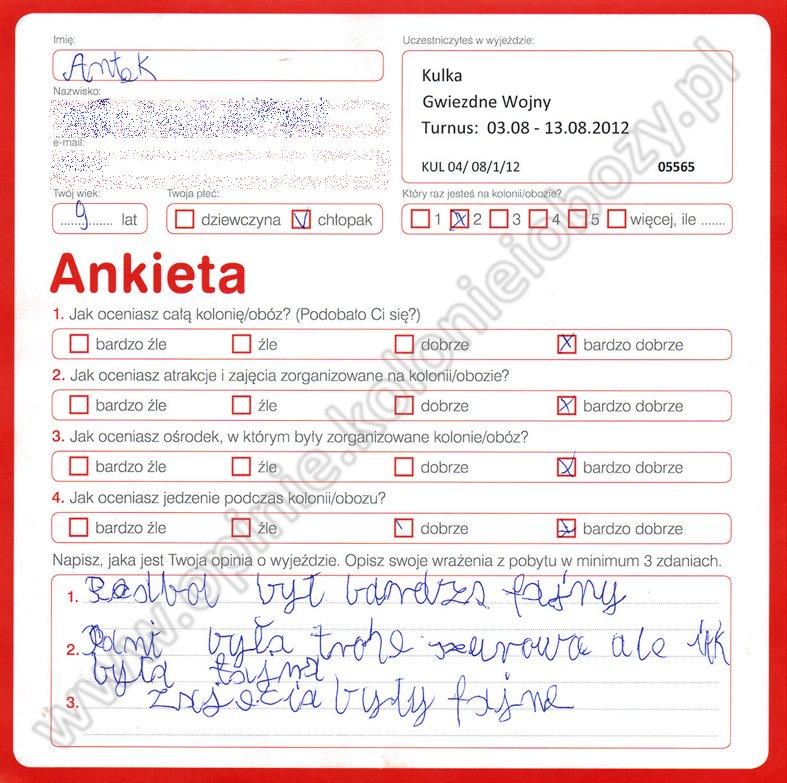 Imię:
Antek
Nazwisko:
e-mail:
Twój wiek:
9 lat
Twoja płeć:
dziewczyna chłopak
Uczestniczyłeś w wyjeździe:
Kulka
Gwiezdne Wojny
Turnus: 03.08 - 13.08.2012
KUL 04/ 08/1/12 05565
Który raz jesteś na kolonii/obozie?
1 2 3 4 5 więcej, ile .......
Ankieta
1. Jak oceniasz całą kolonię/obóz? (Podobało Ci się?)
bardzo źle źle dobrze bardzo dobrze
2. Jak oceniasz atrakcje i zajęcia zorganizowane na kolonii/obozie?
bardzo źle źle dobrze bardzo dobrze
3. Jak oceniasz ośrodek, w którym były zorganizowane kolonie/obóz?
bardzo źle źle dobrze bardzo dobrze
4. Jak oceniasz jedzenie podczas kolonii/obozu?
bardzo źle źle dobrze bardzo dobrze
Napisz, jaka jest Twoja opinia o wyjeździe. Opisz swoje wrażenia z pobytu w minimum 3 zdaniach.
1. był bardzo fajny
2. Pani była trohe surowa ale
była fajna
3. zajecia były fajne
www.opinie.kolonieiobozy.pl